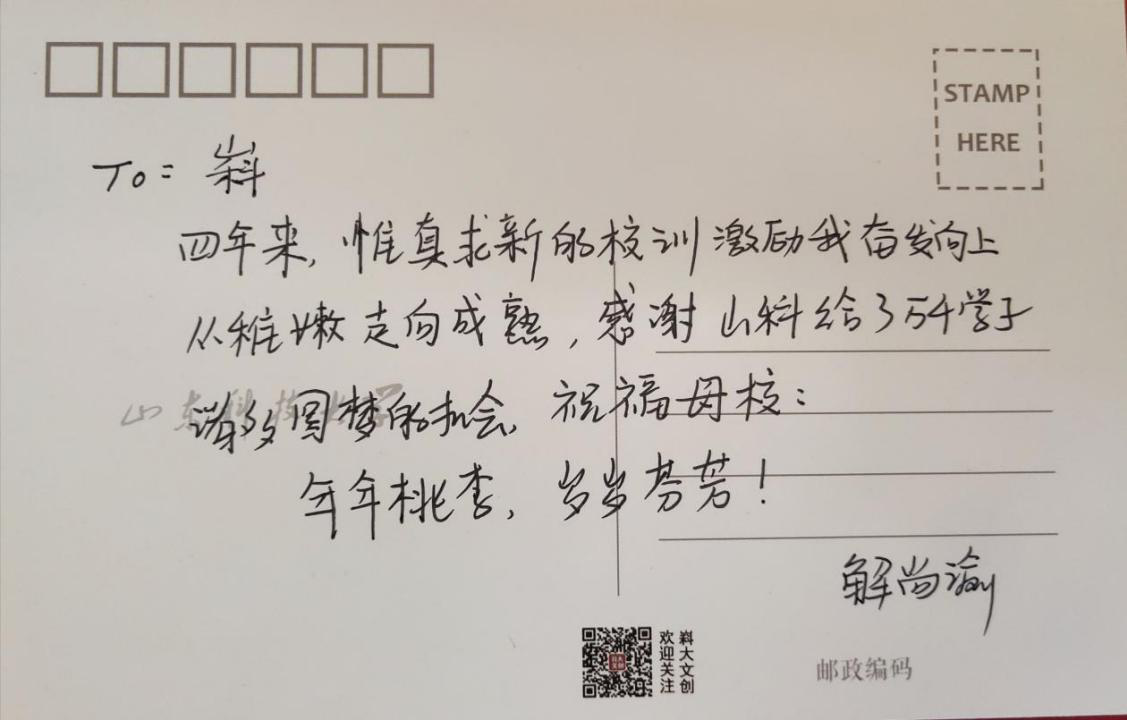 STAMP
HERE
To: 嵙
四年来,惟真求新的校训激励我奋发向上
从稚嫩走向成熟,感谢山科给了万千学子
诸多圆梦的机会,祝福母校:
年年桃李,岁岁芬芳!
山东科技大学
解尚渝
嵙大文创
欢迎关注
邮政编码